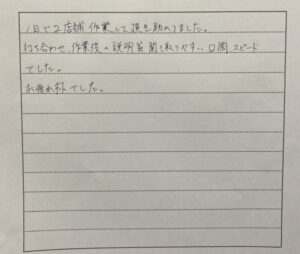 1日で2店舗作業して頂き助かりました。
打ち合わせ、作業後の説明等聞き取りやすい口調スピード
でした。
お疲れ様でした。